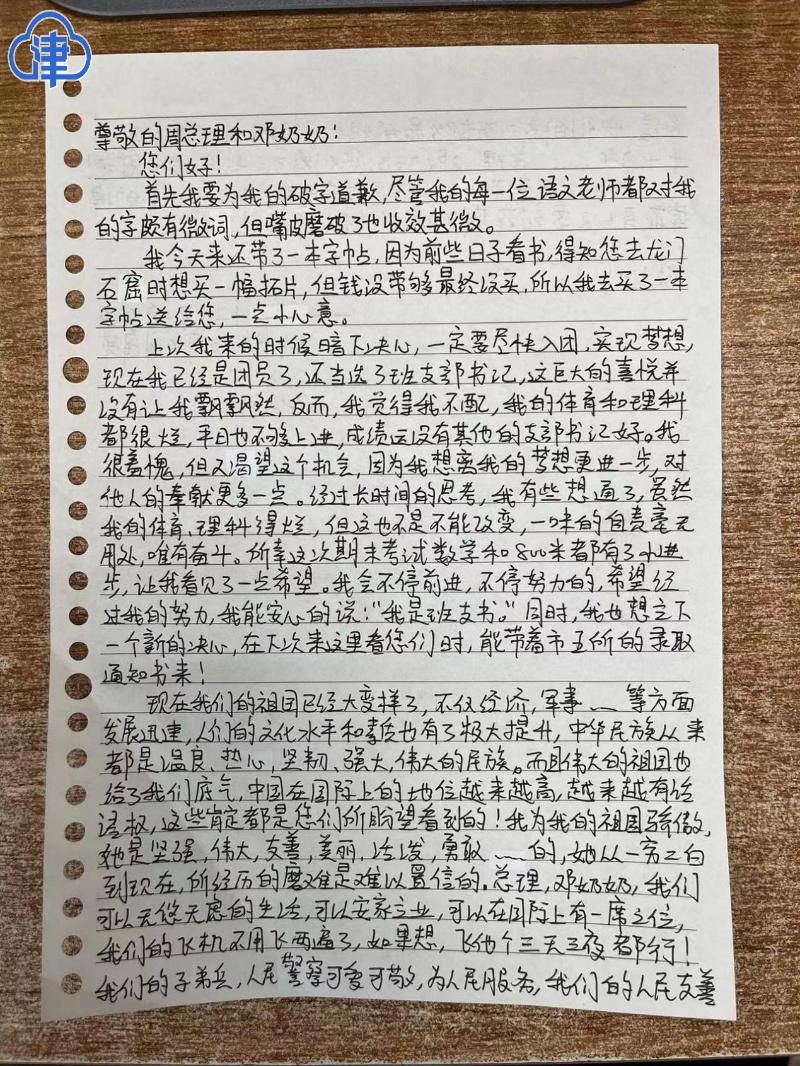 津
尊敬的周总理和邓奶奶！
您们好！
首先我要为我的破字道歉，尽管我的每一位语文老师都对我
的字颇有微词，但嘴皮磨破了也收效甚微。
我今天来还带了一本字帖，因为前些日子看书，得知您去龙门
石窟时想买一幅拓片，但钱没带够最终没买，所以我去买了一本
字帖送给您，一点小心意。
上次我来的时候暗下决心，一定要尽快入团，实现梦想，
现在我已经是团员了，还当选了班支部书记，这巨大的喜悦并
没有让我飘飘然，反而，我觉得我不配，我的体育和理科
都很烂，平日也不够上进，成绩远没有其他的支部书记好。我
很羞愧，但又渴望这个机会，因为我想离我的梦想更进一步，对
他人的奉献更多一点。经过长时间的思考，我有些想通了，虽然
我的体育、理科得烂，但这也不是不能改变，一味的自责毫无
用处，唯有奋斗。所幸这次期末考试数学和800米都有了小进
步，让我看见了一点希望。我会不停前进，不停努力的，希望经
过我的努力，我能安心的说："我是班支书。"同时，我也想立下
一个新的决心，在下次来这里看您们时，能带着市五所的录取
通知书来！
现在我们的祖国已经大变样了，不仅经济，军事……等方面
发展迅速，人们的文化水平和素质也有了极大提升，中华民族从来
都是温良、热心、坚韧、强大，伟大的民族。而且伟大的祖国也
给了我们底气，中国在国际上的地位越来越高，越来越有话
语权，这些肯定都是您们所盼望看到的！我为我的祖国骄傲，
她是坚强，伟大，友善，美丽，活泼，勇敢……的，她从一穷二白
到现在，所经历的磨难是难以置信的。总理，邓奶奶，我们
可以无忧无虑的生活，可以安家立业，可以在国际上有一席之位，
我们的飞机不用飞两遍了，如果想，飞他个三天三夜都行！
我们的子弟兵，人民警察可爱可敬，为人民服务，我们的人民友善